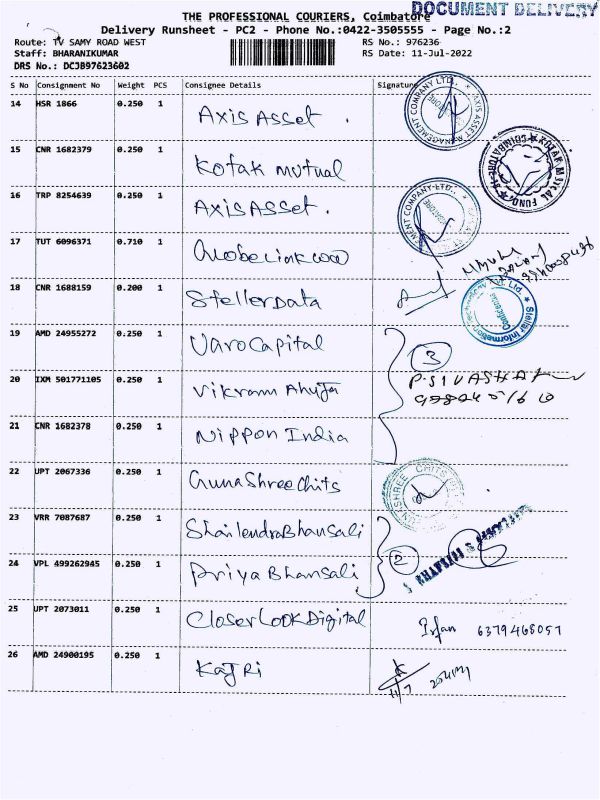 DOCUMENT DELIVERY
THE PROFESSIONAL COURIERS, Coimbatore
Delivery Runsheet - PC2 - Phone No.:0422-3505555 - Page No.:2
Route: TV SAMY ROAD WEST RS No.: 976236
Staff: BHARANIKUMAR RS Date: 11-Jul-2022
DRS No.: DCJB97623602
S No Consignment No Weight PCS Consignee Details Signature
14 HSR 1866 0.250 1 Axis Asset .
15 CNR 1682379 0.250 1 Kotak mutual
16 TRP 8254639 0.250 1 Axis Asset .
17 TUT 6096371 0.710 1 Globe Link
18 CNR 1688159 0.200 1 Steller Data
19 AMD 24955272 0.250 1 Varo Capital 3
20 IXM 501771105 0.250 1 Vikram Ahuja
21 CNR 1682378 0.250 1 Nippon India
22 UPT 2067336 0.250 1 Guna Shree Chits
23 VRR 7087687 0.250 1 Shailendra Bhansali
24 VPL 499262945 0.250 1 Priya Bhansali 2
25 UPT 2073011 0.250 1 Closer Look Digital Irfan 6379468057
26 AMD 24900195 0.250 1 Kajri
11/7